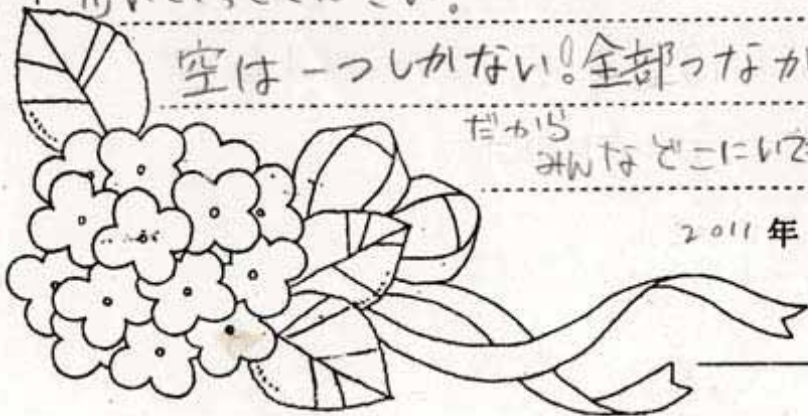 ください。
空は一つしかない!全部つなが
だから
みんなどこにいて
2011年